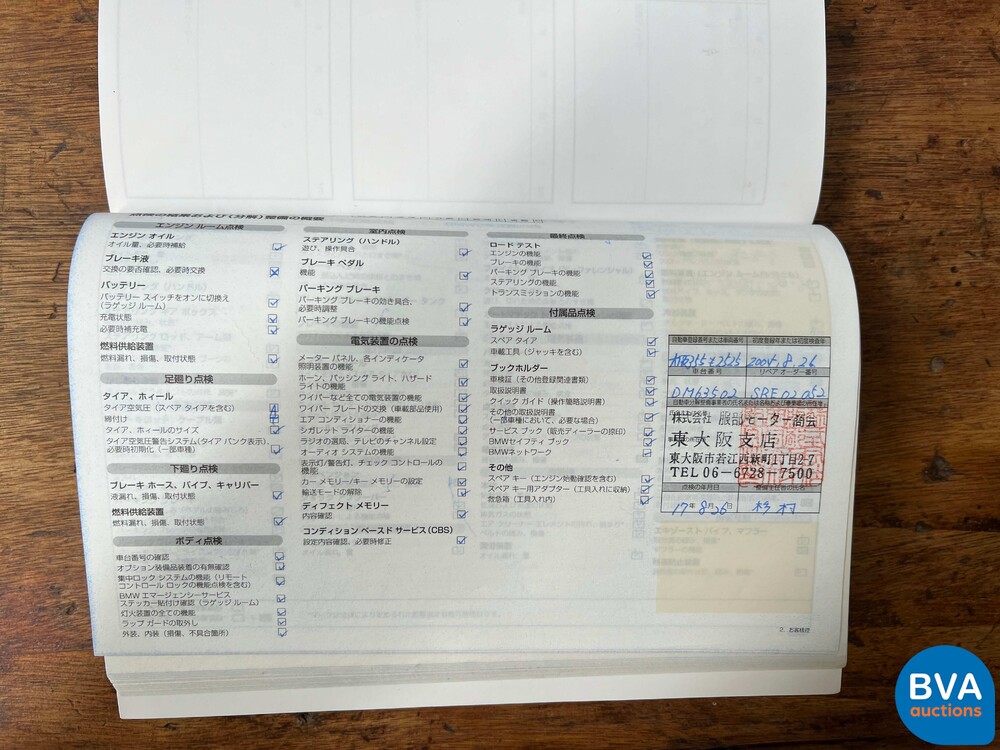 点検の結果および(分解)整備の概要
エンジン ルーム点検
エンジン オイル
オイル量、必要時補給
ブレーキ液
交換の要否確認、必要時交換
バッテリー
バッテリー スイッチをオンに切換え
(ラゲッジ ルーム)
充電状態
必要時補充電
燃料供給装置
燃料漏れ、損傷、取付状態
足廻り点検
タイア、ホィール
タイア空気圧(スペア タイアを含む)
締付け
タイア、ホィールのサイズ
タイア空気圧警告システム(タイア パンク表示)、
必要時初期化(一部車種)
下廻り点検
ブレーキ ホース、パイプ、キャリパー
液漏れ、損傷、取付状態
燃料供給装置
燃料漏れ、損傷、取付状態
ボディ点検
車台番号の確認
オプション装備品装着の有無確認
集中ロック システムの機能(リモート
コントロール ロックの機能点検を含む)
BMW エマージェンシーサービス
ステッカー貼付け確認(ラゲッジ ルーム)
灯火装置の全ての機能
ラップ ガードの取外し
外装、内装(損傷、不具合箇所)
室内点検
ステアリング(ハンドル)
遊び、操作具合
ブレーキ ペダル
機能
パーキング ブレーキ
パーキング ブレーキの効き具合、
必要時調整
パーキング ブレーキの機能点検
電気装置の点検
メーター パネル、各インディケータ
照明装置の機能
ホーン、パッシング ライト、ハザード
ライトの機能
ワイパーなど全ての電気装置の機能
ワイパー ブレードの交換(車載部品使用)
エア コンディショナーの機能
シガレット ライターの機能
ラジオの選局、テレビのチャンネル設定
オーディオ システムの機能
表示灯/警告灯、チェック コントロールの
機能
カー メモリー/キー メモリーの設定
輸送モードの解除
ディフェクト メモリー
内容確認
コンディション ベースド サービス(CBS)
設定内容確認、必要時修正
最終点検
ロード テスト
エンジンの機能
ブレーキの機能
パーキング ブレーキの機能
ステアリングの機能
トランスミッションの機能
付属品点検
ラゲッジ ルーム
スペア タイア
車載工具(ジャッキを含む)
ブックホルダー
車検証(その他登録関連書類)
取扱説明書
クイック ガイド(操作簡略説明書)
その他の取扱説明書
(一部車種において、必要な場合)
サービス ブック(販売ディーラーの捺印)
BMWセイフティ ブック
BMWネットワーク
その他
スペア キー(エンジン始動確認を含む)
スペア キー用アダプター(工具入れに収納)
救急箱(工具入れ内)
自動車登録番号または車両番号 初度登録年または初度検査年
2004.8.26
車台番号 リペア オーダー番号
DM63502 SRE02052
株式会社 服部モーター商会
東大阪支店
東大阪市若江西新町1丁目2-7
TEL 06-6728-7500
点検の年月日
17年8月26日 杉村
2. お客様控
BVA
auctions